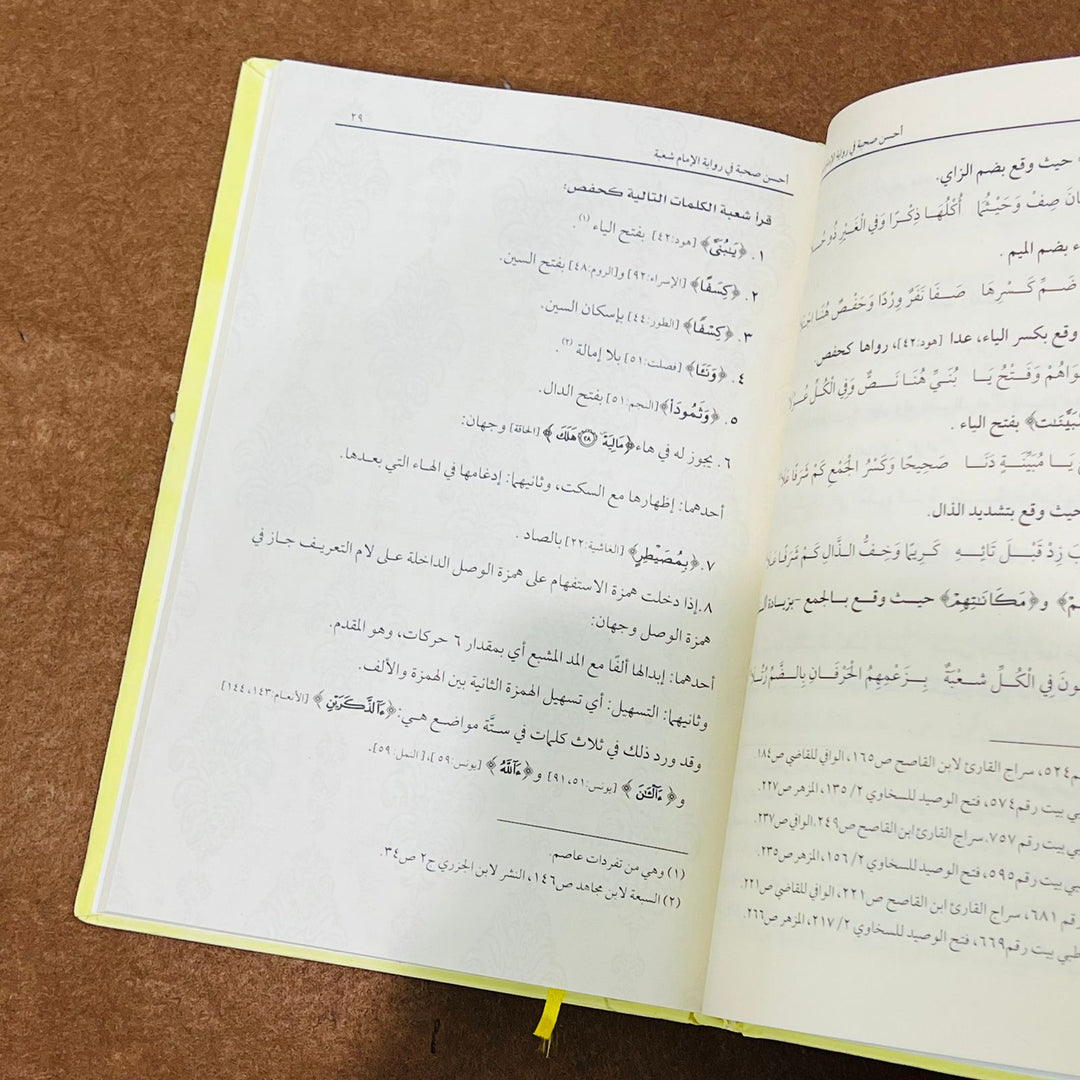 أحسن صحبة في رواية الإمام
حيث وقع بضم الزاي.
صِفْ وَحَيْثُمَا أُكْلُهَا ذِكْرًا وَفِي الْغَيْرِ ذُو
بضم الميم .
ضَمِّ كَسْرِهَا صَفَا نَفَرٌ وِرْدًا وَحَفْصٌ هُنَا
وقع بكسر الياء، عدا [هود:٤٢]، رواها كحفص.
وَفَتْحُ يَا بُنَيِّ هُنَا نَصٌّ وَفِي الْكُلِّ
بفتح الياء .
يَا مُبَيِّنَةٍ دَنَا صَحِيحًا وَكَسْرُ الْجَمْعِ كَمْ شَرَفًا عَلَا
حيث وقع بتشديد الذال.
زِدْ قَبْلَ تَائِهِ كَرِيمًا وَخِفُّ الذَّالِ كَمْ شَرَفًا عَلَا
و﴿مَكَانَتِهِمْ﴾ حيث وقع بالجمع -بزيادة
فِي الْكُلِّ شُعْبَةٌ بِزَعْمِهِمُ الْحَرْفَانِ بِالضَّمِّ رُتِّلَا
٥٢٤، سراج القارئ لابن القاصح ص١٦٥، الوافي للقاضي ص١٨٤
بيت رقم٥٧٤، فتح الوصيد للسخاوي ٢/ ١٣٥، المزهر ص٢٢٧.
بيت رقم ٧٥٧. سراج القارئ ابن القاصح ص٢٤٩. الوافي ص٢٣٧.
بيت رقم٥٩٥، فتح الوصيد للسخاوي ٢/ ١٥٦، المزهر ص٢٣٥.
رقم ٦٨١، سراج القارئ ابن القاصح ص٢٢١، الوافي للقاضي ص٢٢١.
بيت رقم٦٦٩، فتح الوصيد للسخاوي ٢/ ٢١٧، المزهر ص٢٦٦.
أحسن صحبة في رواية الإمام شعبة ٢٩
قرأ شعبة الكلمات التالية كحفص:
١. ﴿يَٰبُنَيَّ﴾ [هود:٤٢] بفتح الياء (١).
٢. ﴿كِسَفًا﴾ [الإسراء:٩٢] و[الروم:٤٨] بفتح السين.
٣. ﴿كِسْفًا﴾ [الطور:٤٤] بإسكان السين.
٤. ﴿وَنَـَٔا﴾ [فصلت:٥١] بلا إمالة (٢).
٥. ﴿وَثَمُودَاْ﴾ [النجم:٥١] بفتح الدال.
٦. يجوز له في هاء ﴿مَالِيَهْ ٢٨ هَلَكَ﴾ [الحاقة] وجهان:
أحدهما: إظهارها مع السكت، وثانيهما: إدغامها في الهاء التي بعدها.
٧. ﴿بِمُصَيْطِرٍ﴾ [الغاشية:٢٢] بالصاد .
٨. إذا دخلت همزة الاستفهام على همزة الوصل الداخلة على لام التعريف جاز في
همزة الوصل وجهان:
أحدهما: إبدالها ألفًا مع المد المشبع أي بمقدار ٦ حركات، وهو المقدم.
وثانيهما: التسهيل: أي تسهيل الهمزة الثانية بين الهمزة والألف.
وقد ورد ذلك في ثلاث كلمات في ستَّة مواضع هي: ﴿ءَآلذَّكَرَيْنِ﴾ [الأنعام:١٤٣، ١٤٤]
و﴿ءَآلْـَٰٔنَ﴾ [يونس:٥١، ٩١] و﴿ءَآللَّهُ﴾ [يونس:٥٩]، [النمل:٥٩].
(١) وهي من تفردات عاصم.
(٢) السبعة لابن مجاهد ص١٤٦، النشر لابن الجزري ج٢ ص٣٤.